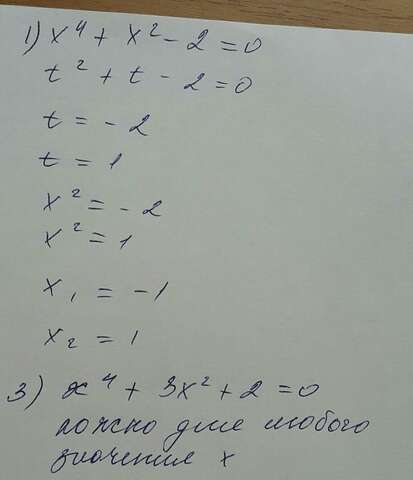 1) x⁴ + x² - 2 = 0
t² + t - 2 = 0
t = - 2
t = 1
x² = - 2
x² = 1
x₁ = -1
x₂ = 1
3) x⁴ + 3x² + 2 = 0
ложно для любого
значения x